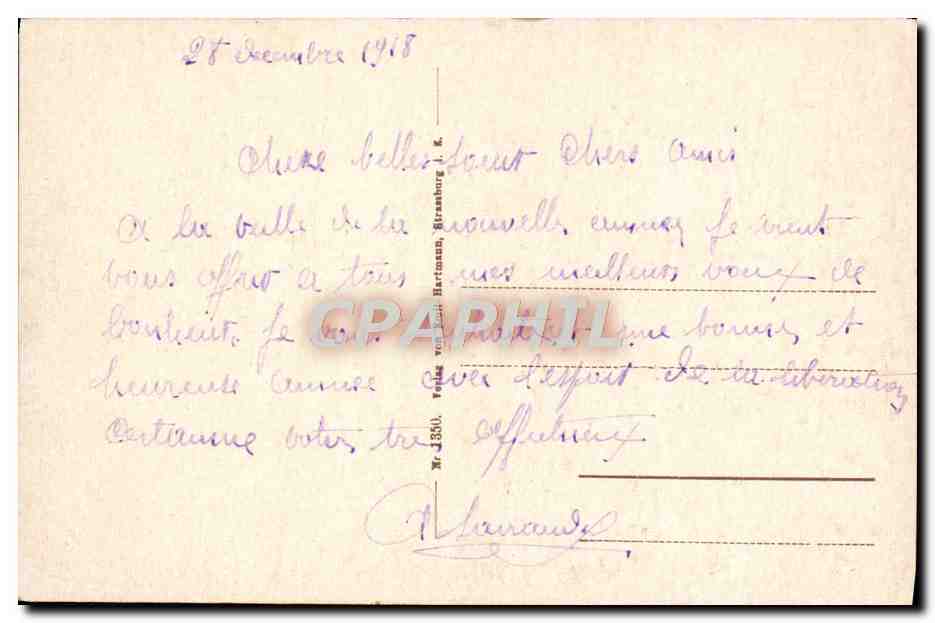 28 decembre 1918
Chere belle soeur Chers amis
A la veille de la nouvelle annee je vient
vous offrir a tous mes meilleurs voeux de
bonheur. Je vous une bonne et
heureuse annee avec l'espoir de la liberation
certaine votre tres affectueux
Nr. 1350. Verlag von Emil Hartmann, Strassburg i. E.
CPAPHIL